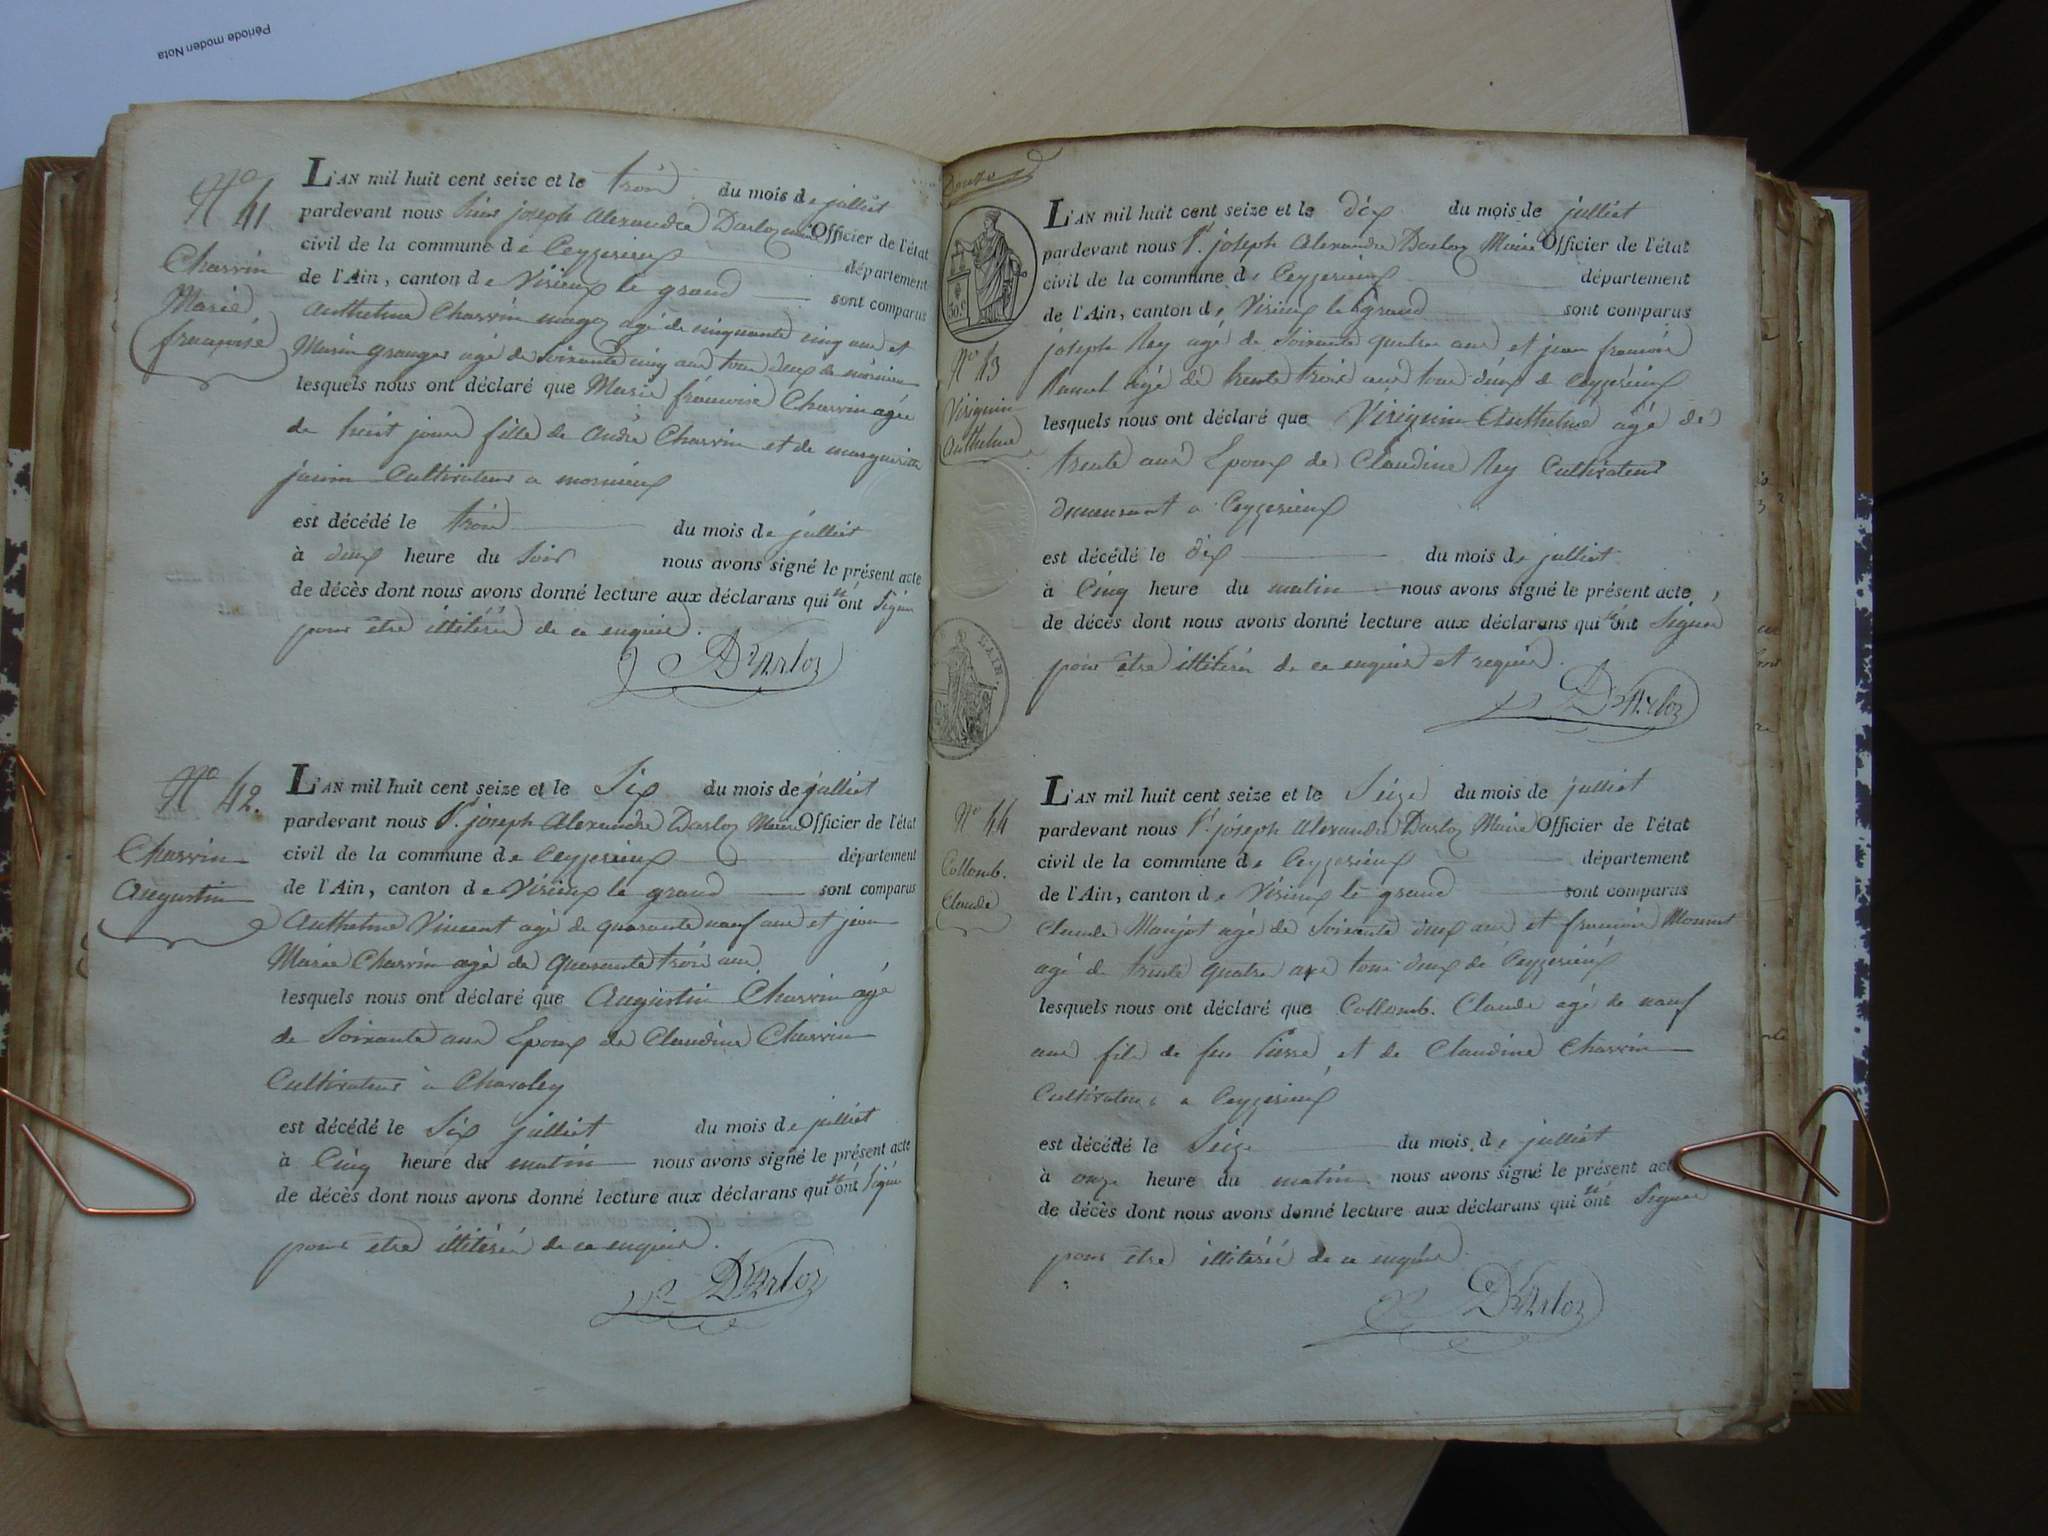 Période moden Nota
No 41
Charvin
Marie
françoise
L'AN mil huit cent seize et le trois du mois de julliet
pardevant nous Sieur joseph Alexandre Darloz maire Officier de l'état
civil de la commune de Ceyzerieux département
de l'Ain, canton de Virieux le grand sont comparus
Anthelme Charvin agé de cinquante cinq ans et
Marin granger agé de soixante cinq ans tous deux de
lesquels nous ont déclaré que Marie françoise Charvin agée
de huit jours fille de André Charvin et de margueritte
Cultivateur a
est décédé le trois du mois de julliet
à deux heure du soir nous avons signé le présent acte
de décès dont nous avons donné lecture aux déclarans qui n'ont signé
pour être illitéré de ce enquis.
D'Arloz
No 42.
Charvin
Augustin
L'AN mil huit cent seize et le Six du mois de julliet
pardevant nous Sr. joseph Alexandre Darloz Maire Officier de l'état
civil de la commune de Ceyzerieux département
de l'Ain, canton de Virieux le grand sont comparus
Anthelme Vincent agé de quarante neuf ans et jean
Marie Charvin agé de quarante trois ans
lesquels nous ont déclaré que Augustin Charvin agé
de soixante ans Epoux de Claudine Charvin
Cultivateur à
est décédé le Six julliet du mois de julliet
à Cinq heure du matin nous avons signé le présent acte
de décès dont nous avons donné lecture aux déclarans qui n'ont signé
pour être illitéré de ce enquis.
D'Arloz
Douze
50 c
No 43
Virignin
Anthelme
L'AN mil huit cent seize et le dix du mois de julliet
pardevant nous Sr. joseph Alexandre Darloz Maire Officier de l'état
civil de la commune de Ceyzerieux département
de l'Ain, canton de Virieux le grand sont comparus
joseph Rey agé de soixante quatre ans et jean françois
agé de trente trois ans tous deux de Ceyzerieux
lesquels nous ont déclaré que Virignin Anthelme agé de
trente ans Epoux de Claudine Rey Cultivateur
demeurant a Ceyzerieux
est décédé le dix du mois de julliet
à Cinq heure du matin nous avons signé le présent acte,
de décès dont nous avons donné lecture aux déclarans qui n'ont signé
pour être illitéré de ce enquis et requis.
D'Arloz
L'AIN.
No 44
Collomb.
Claude
L'AN mil huit cent seize et le Seize du mois de julliet
pardevant nous Sr. joseph Alexandre Darloz Maire Officier de l'état
civil de la commune de Ceyzerieux département
de l'Ain, canton de Virieux le grand sont comparus
Claude Manjot agé de soixante deux ans et françois
agé de trente quatre ans tous deux de Ceyzerieux
lesquels nous ont déclaré que Collomb. Claude agé de neuf
ans fils de feu Pierre et de Claudine Charvin
Cultivateur a Ceyzerieux
est décédé le Seize du mois de julliet
à onze heure du matin nous avons signé le présent acte
de décès dont nous avons donné lecture aux déclarans qui n'ont signé
pour être illitéré de ce enquis.
D'Arloz